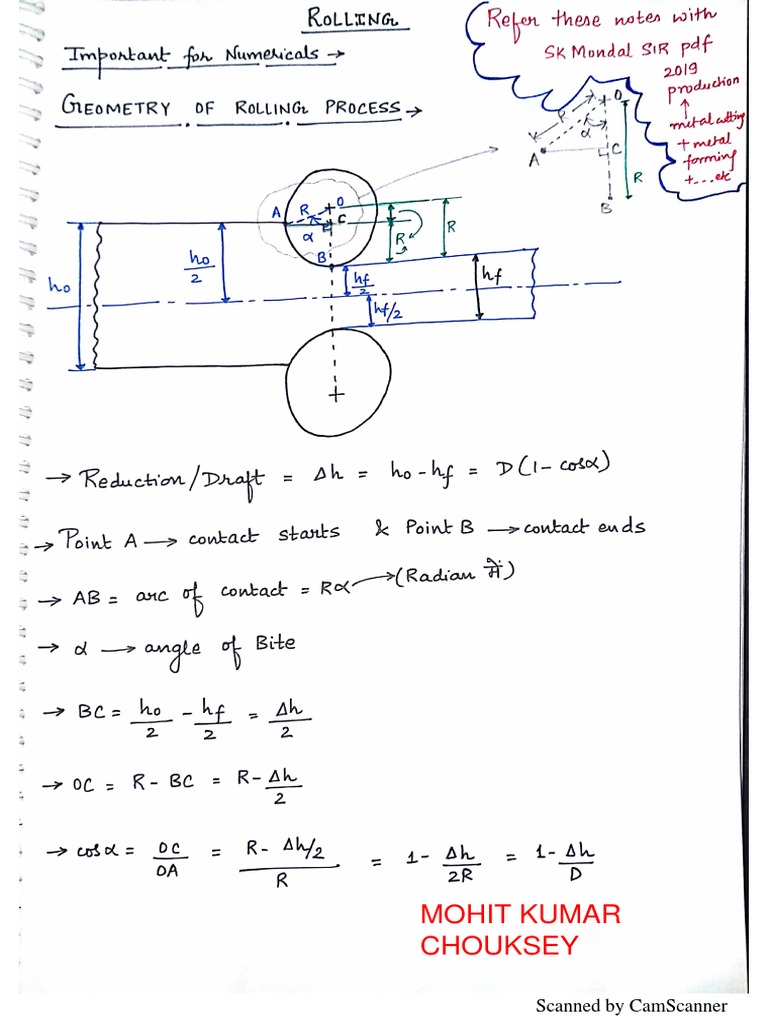 ROLLING
Important for Numericals →
GEOMETRY OF ROLLING PROCESS →
Refer these notes with
SK Mondal SIR pdf
2019
production
↑
metal cutting
+ metal
forming
+...etc
O
R
α
A
C
R
B
A R O
C
α
B
R
R
ho
ho/2
hf/2
hf/2
hf
→ Reduction/Draft = Δh = ho - hf = D(1 - cosα)
→ Point A → contact starts & Point B → contact ends
→ AB = arc of contact = Rα → (Radian में)
→ α → angle of Bite
→ BC = ho/2 - hf/2 = Δh/2
→ OC = R - BC = R - Δh/2
→ cosα = OC/OA = (R - Δh/2)/R = 1 - Δh/2R = 1 - Δh/D
MOHIT KUMAR
CHOUKSEY
Scanned by CamScanner